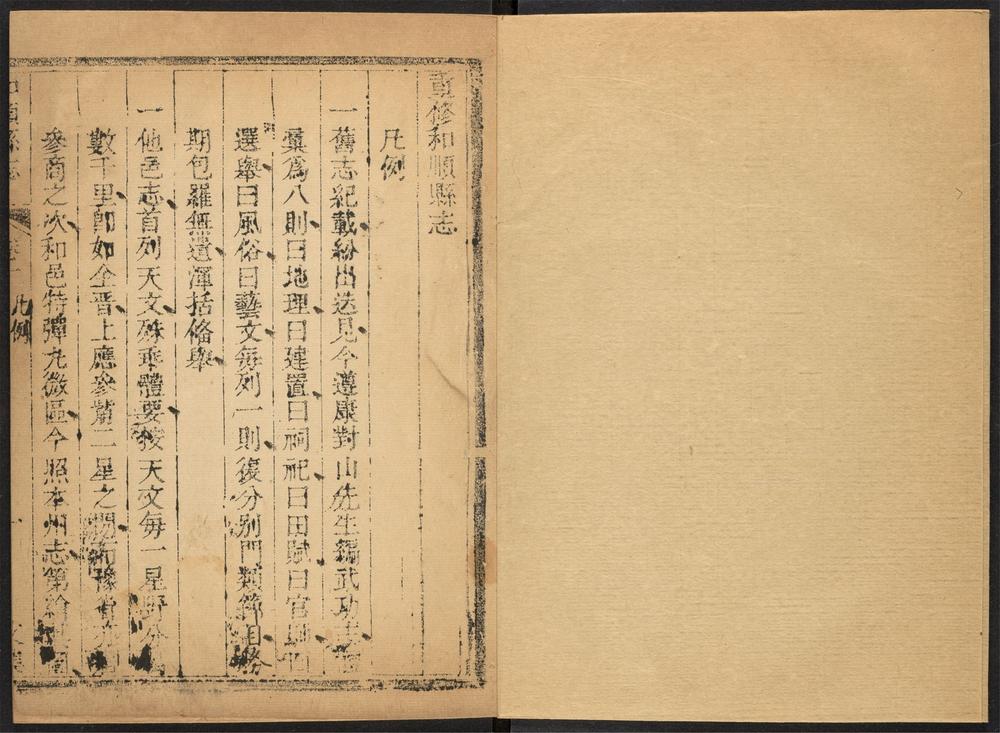 重修和順縣志
凡例
一舊志紀載紛出迭見今遵康對山先生編武功志
彚為八則曰地理曰建置曰祠祀曰田賦曰官師曰
選舉曰風俗曰藝文每列一則復分別門類節目務
期包羅無遺渾括俻舉
一他邑志首列天文殊乖體要按天文每一星野分
數千里即如全晋上應參觜二星之間而豫
參商之次和邑特彈丸微區今照本州志第繪
和順縣志 卷一 凡例 一